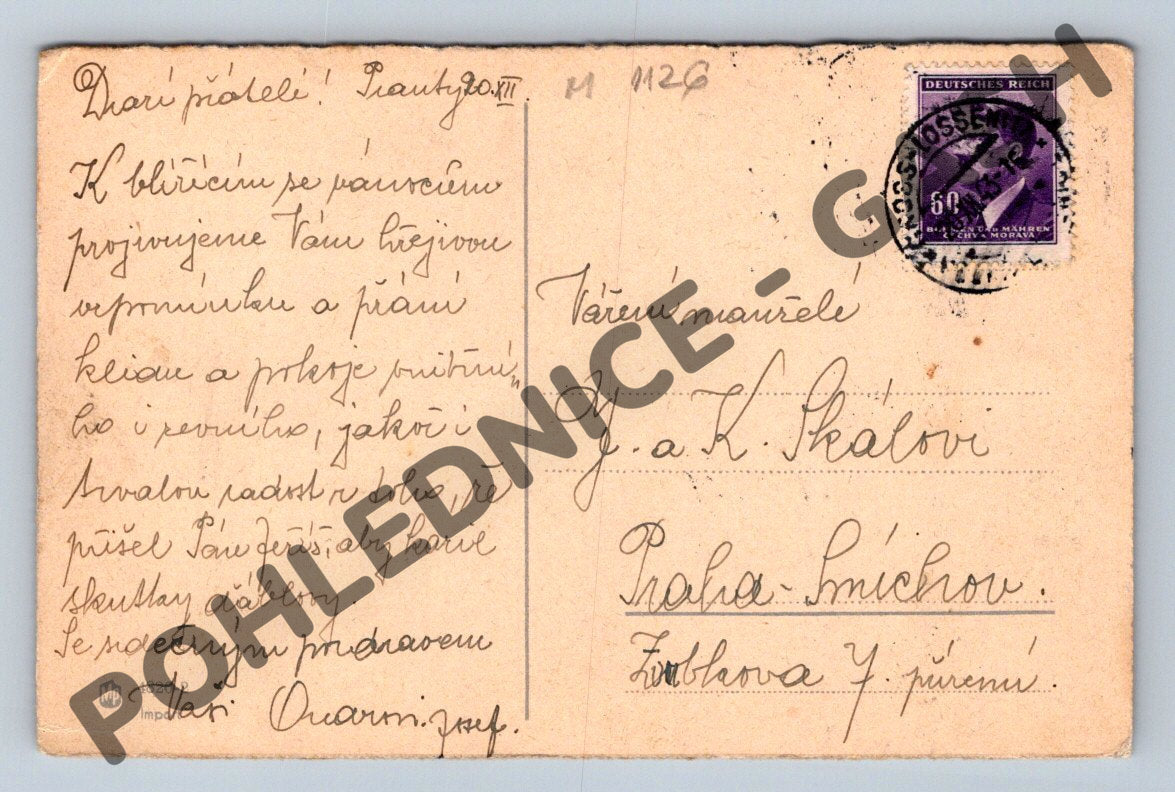 Drazí přátelé! 20.XII
M 1126
K blížícím se vánocům
projevujeme Vám hřejivou
vzpomínku a přání
klidu a pokoje vnitřní-
ho i zevního, jakož i
trvalou radost z toho, že
přišel Pán Ježíš, aby kazil
skutky ďáblovy.
Se srdečným pozdravem
Vaši Josef.
Import
DEUTSCHES REICH
60
BÖHMEN UND MÄHREN
ČECHY A MORAVA
GROSS-LOSSENITZ
Vážení manželé
J. a K. Skálovi
Praha-Smíchov.
Zubkova 7. přízemí.
POHLEDNICE - G H